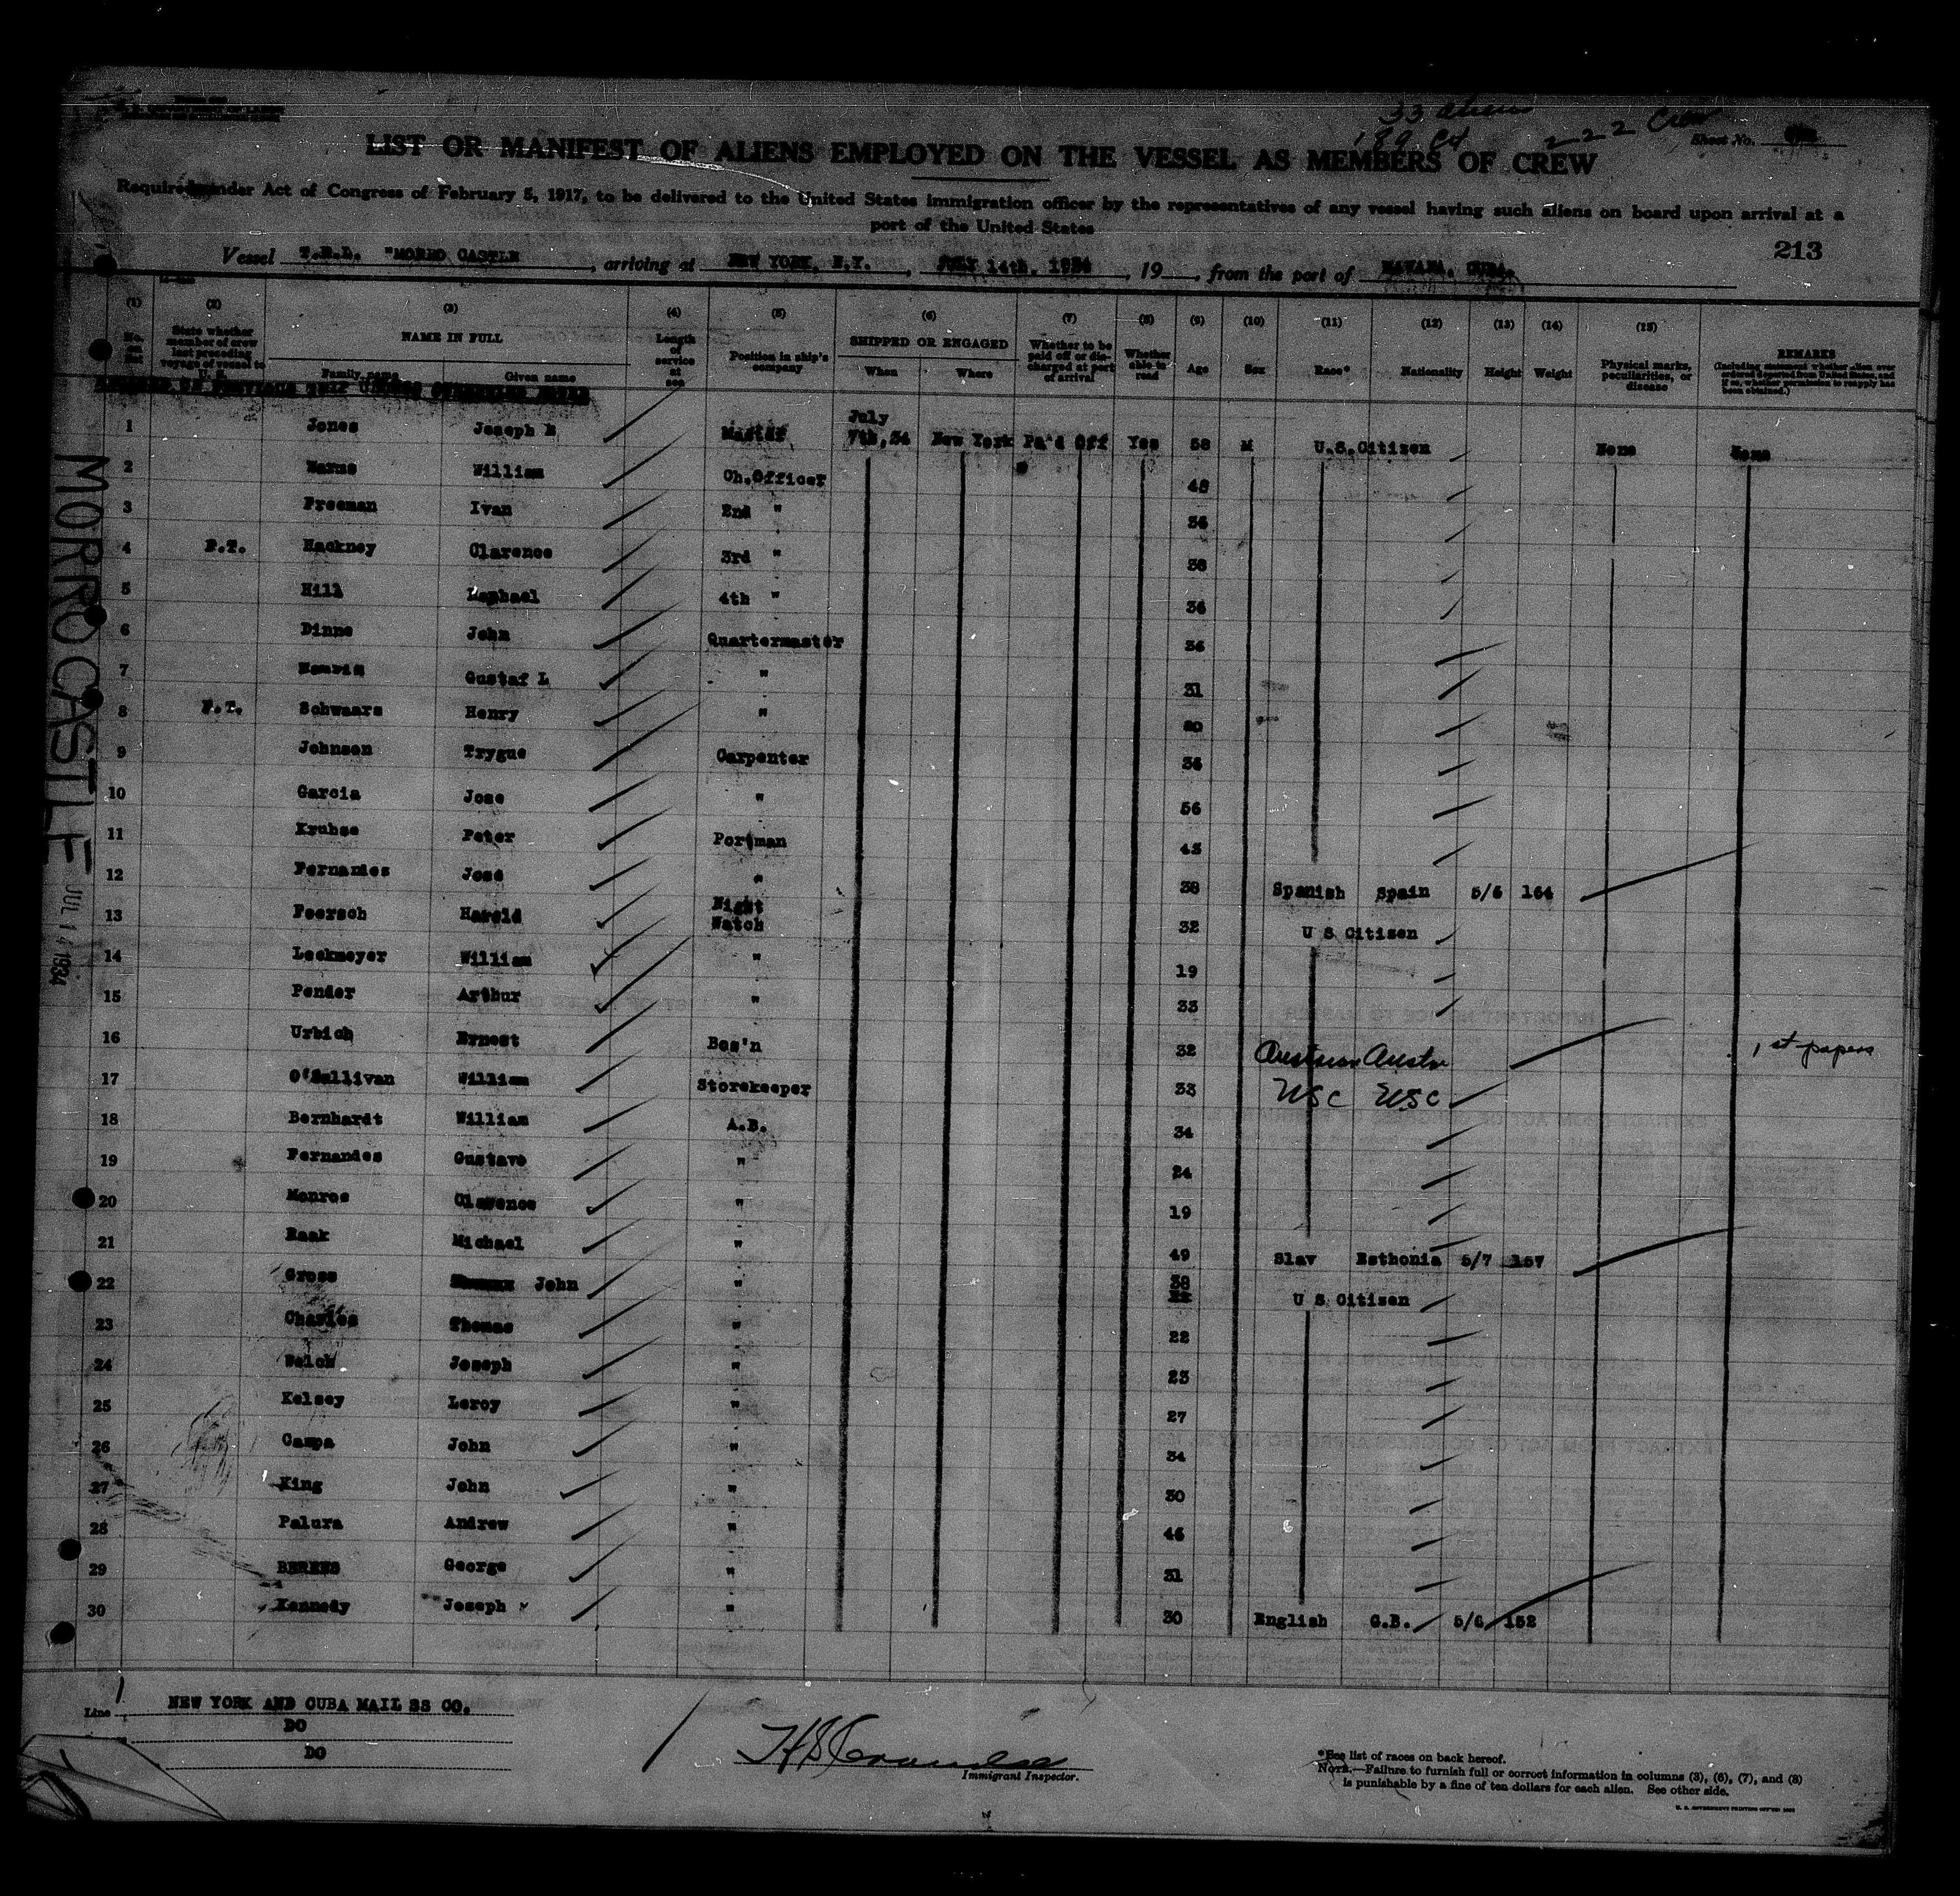 33 alien
189 Cit 222 Crew
Sheet No.
LIST OR MANIFEST OF ALIENS EMPLOYED ON THE VESSEL AS MEMBERS OF CREW
Required under Act of Congress of February 5, 1917, to be delivered to the United States immigration officer by the representatives of any vessel having such aliens on board upon arrival at a
port of the United States
213
Vessel T.E.L. "MORRO CASTLE , arriving at NEW YORK, N.Y. , JULY 14th, 1934 , 19 , from the port of HAVANA, CUBA.
(1) (2) (3) (4) (5) (6) (7) (8) (9) (10) (11) (12) (13) (14) (15)
State whether member of crew last preceding voyage of vessel to U. S.
NAME IN FULL
Family name Given name
Length of service at sea
Position in ship's company
SHIPPED OR ENGAGED
When Where
Whether to be paid off or discharged at port of arrival
Whether able to read
Age Sex Race* Nationality Height Weight
Physical marks, peculiarities, or disease
REMARKS
(Including statement whether alien ever ordered deported from United States, and if so, whether permission to reapply has been obtained.)
1 Jones Joseph E Master July 7th,34 New York Pa'd Off Yes 58 M U.S.Citizen None None
2 William Ch.Officer 48
3 Freeman Ivan 2nd " 36
4 P.T. Hackney Clarence 3rd " 38
5 Hill Raphael 4th " 34
6 Dinne John Quartermaster 36
7 Gustaf L " 31
8 P.T. Schwaars Henry " 20
9 Johnsen Trygue Carpenter 36
10 Garcia Jose " 56
11 Kruhse Peter Portman 43
12 Fernandes Jose " 38 Spanish Spain 5/6 164
13 Peersch Harold Night Watch 32 U S Citizen
14 Lockmeyer William " 19
15 Pender Arthur " 33
16 Urbich Ernest Bos'n 32 Austrian Austr 1st papers
17 O'Sullivan William Storekeeper 33 USC USC
18 Bernhardt William A.B. 34
19 Fernandes Gustavo " 24
20 Monroe Clarence " 19
21 Raak Michael " 49 Slav Esthonia 5/7 157
22 Gross John " 38 U S Citizen
23 Charles Thomas " 22
24 Welch Joseph " 23
25 Kelsey Leroy " 27
26 Campa John " 34
27 King John " 30
28 Palura Andrew " 46
29 BERENS George " 31
30 Kennedy Joseph " 30 English G.B. 5/6 152
MORRO CASTLE JUL 14 1934
Line NEW YORK AND CUBA MAIL SS CO.
DO
DO
Immigrant Inspector.
*See list of races on back hereof.
NOTE.—Failure to furnish full or correct information in columns (3), (6), (7), and (8)
is punishable by a fine of ten dollars for each alien. See other side.